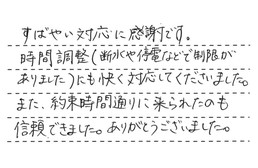 すばやい対応に感謝です。
時間調整(断水や停電などで制限が
ありました)にも快く対応してくださいました。
また、約束時間通りに来られたのも
信頼できました。ありがとうございました。